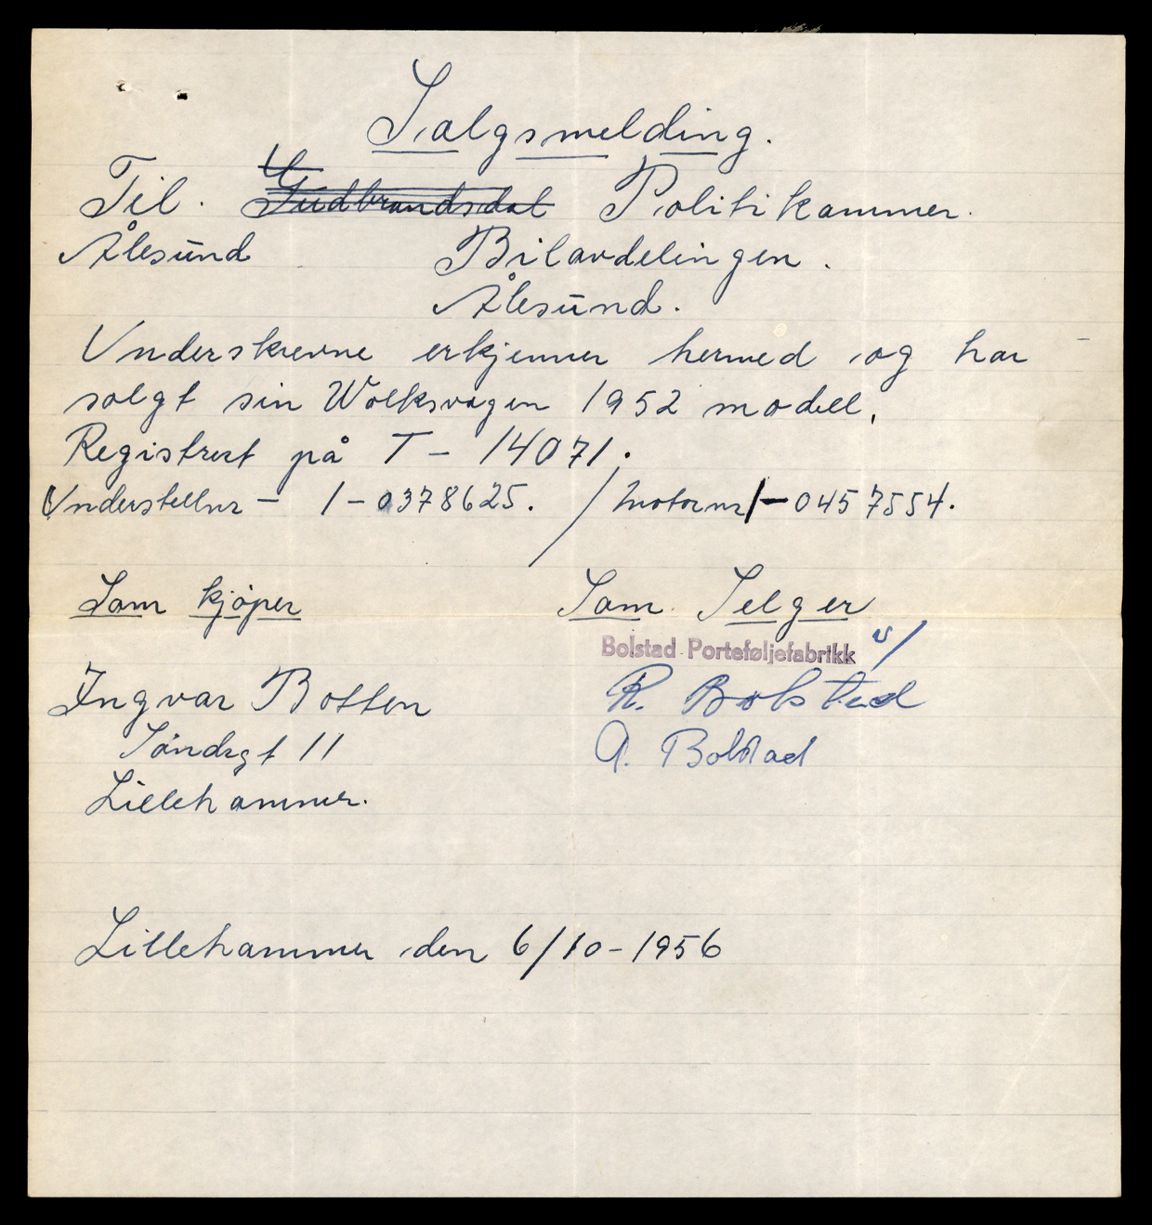 Salgsmelding.
Til. Gudbrandsdal Politikammer.
Ålesund Bilavdelingen.
Ålesund.
Underskrevne erkjenner hermed og har
solgt sin Wolksvagen 1952 modell.
Registrert på T - 14071.
Understellnr - 1 - 0378625. / Motornr 1 - 0457554.
Som kjøper Som Selger
Bolstad Porteføljefabrikk
Ingvar Botten R. Bolstad
11 A. Bolstad
Lillehammer.
Lillehammer den 6/10 - 1956